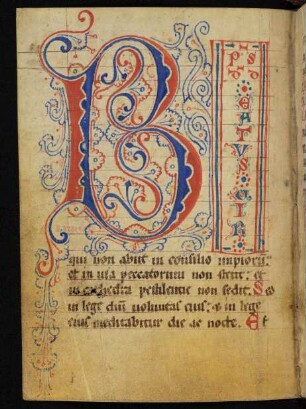 B
EATVS
VIR
qui non abiit in consilio impiorū:
et in uia peccatorum non stetit: et
in cathedra pestilentie non sedit. Sed
in lege dñi uoluntas eius: & in lege
eius meditabitur die ac nocte. Et